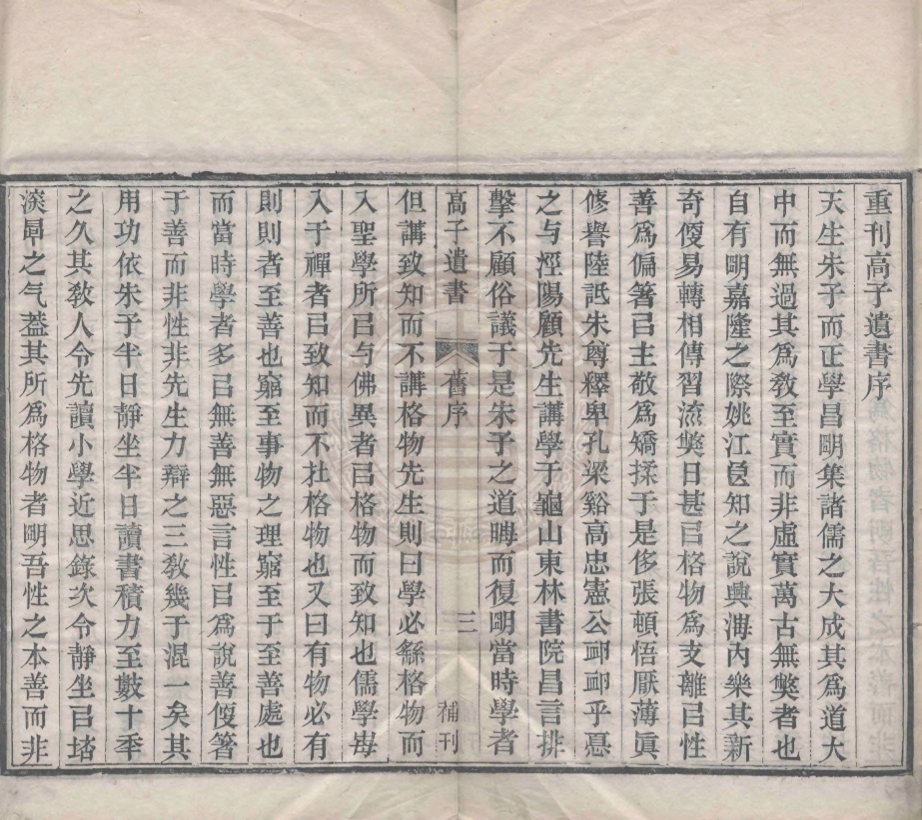 重刊高子遺書序
天生朱子而正學昌朙集諸儒之大成其爲道大
中而無過其爲敎至實而非虛實萬古無獘者也
自有朙嘉隆之際姚江良知之說興海內樂其新
奇僾易轉相傳習流獘日甚㠯格物爲支離㠯性
善爲偏箸㠯主敬爲矯揉于是侈張頓悟厭薄眞
修譽陸詆朱尊釋卑孔梁谿高忠憲公邺邺乎惪
之与涇陽顧先生講學于龜山東林書院昌言排
擊不顧俗議于是朱子之道晦而復朙當時學者
高子遺書 舊序 三 補刊
但講致知而不講格物先生則曰學必繇格物而
入聖學所㠯与佛異者㠯格物而致知也儒學每
入于禪者㠯致知而不扗格物也又曰有物必有
則則者至善也窮至事物之理窮至于至善處也
而當時學者多㠯無善無惡言性㠯爲說善僾箸
于善而非性非先生力辯之三敎幾于混一矣其
用功依朱子半日靜坐半日讀書積力至數十秊
之久其敎人令先讀小學近思錄次令靜坐㠯
之气葢其所爲格物者朙吾性之本善而非